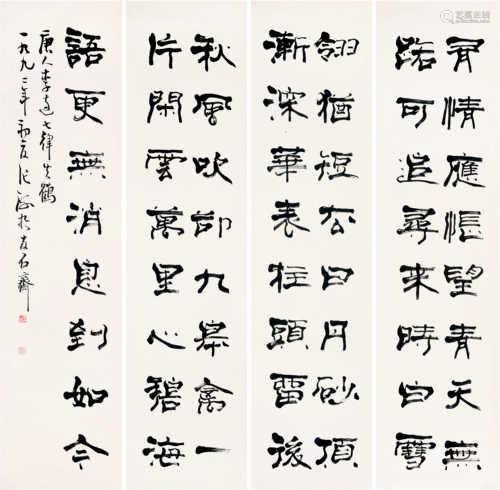 有情應悵望青天無
路可追尋來時白雪
翎猶短去日丹砂頂
漸深華表柱頭留後
秋風吹卻九皋禽一
片閑雲萬里心碧海
語更無消息到如今
唐人李遠七律失鶴
一九九二年初夏張海於友石齋